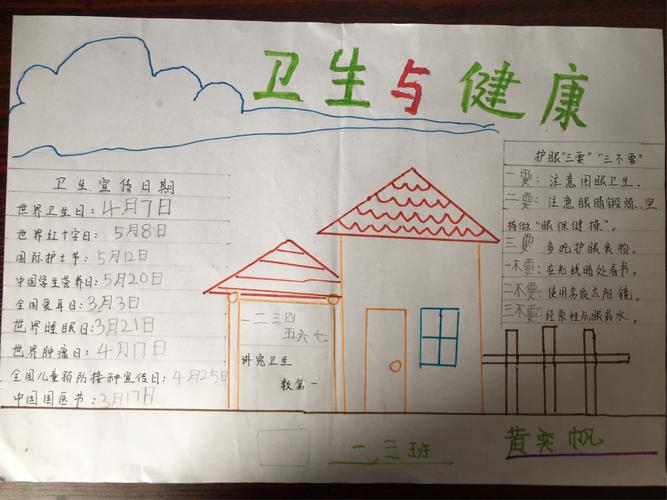 卫生与健康
卫生宣传日期
世界卫生日：4月7日
世界红十字日：5月8日
国际护士节：5月12日
中国学生营养日：5月20日
全国爱耳日：3月3日
世界睡眠日：3月21日
世界肿瘤日：4月17日
全国儿童预防接种宣传日：4月25日
中国国医节：3月17日
一二三四
五六七
讲究卫生
数第一
护眼“三要”“三不要”
一要：注意用眼卫生。
二要：注意眼睛锻炼、坚
持做“眼保健操”。
三要：多吃护眼食物。
一不要：在光线暗处看书。
二不要：使用劣质太阳镜。
三不要：经常性点眼药水。
一、三班
黄奕帆